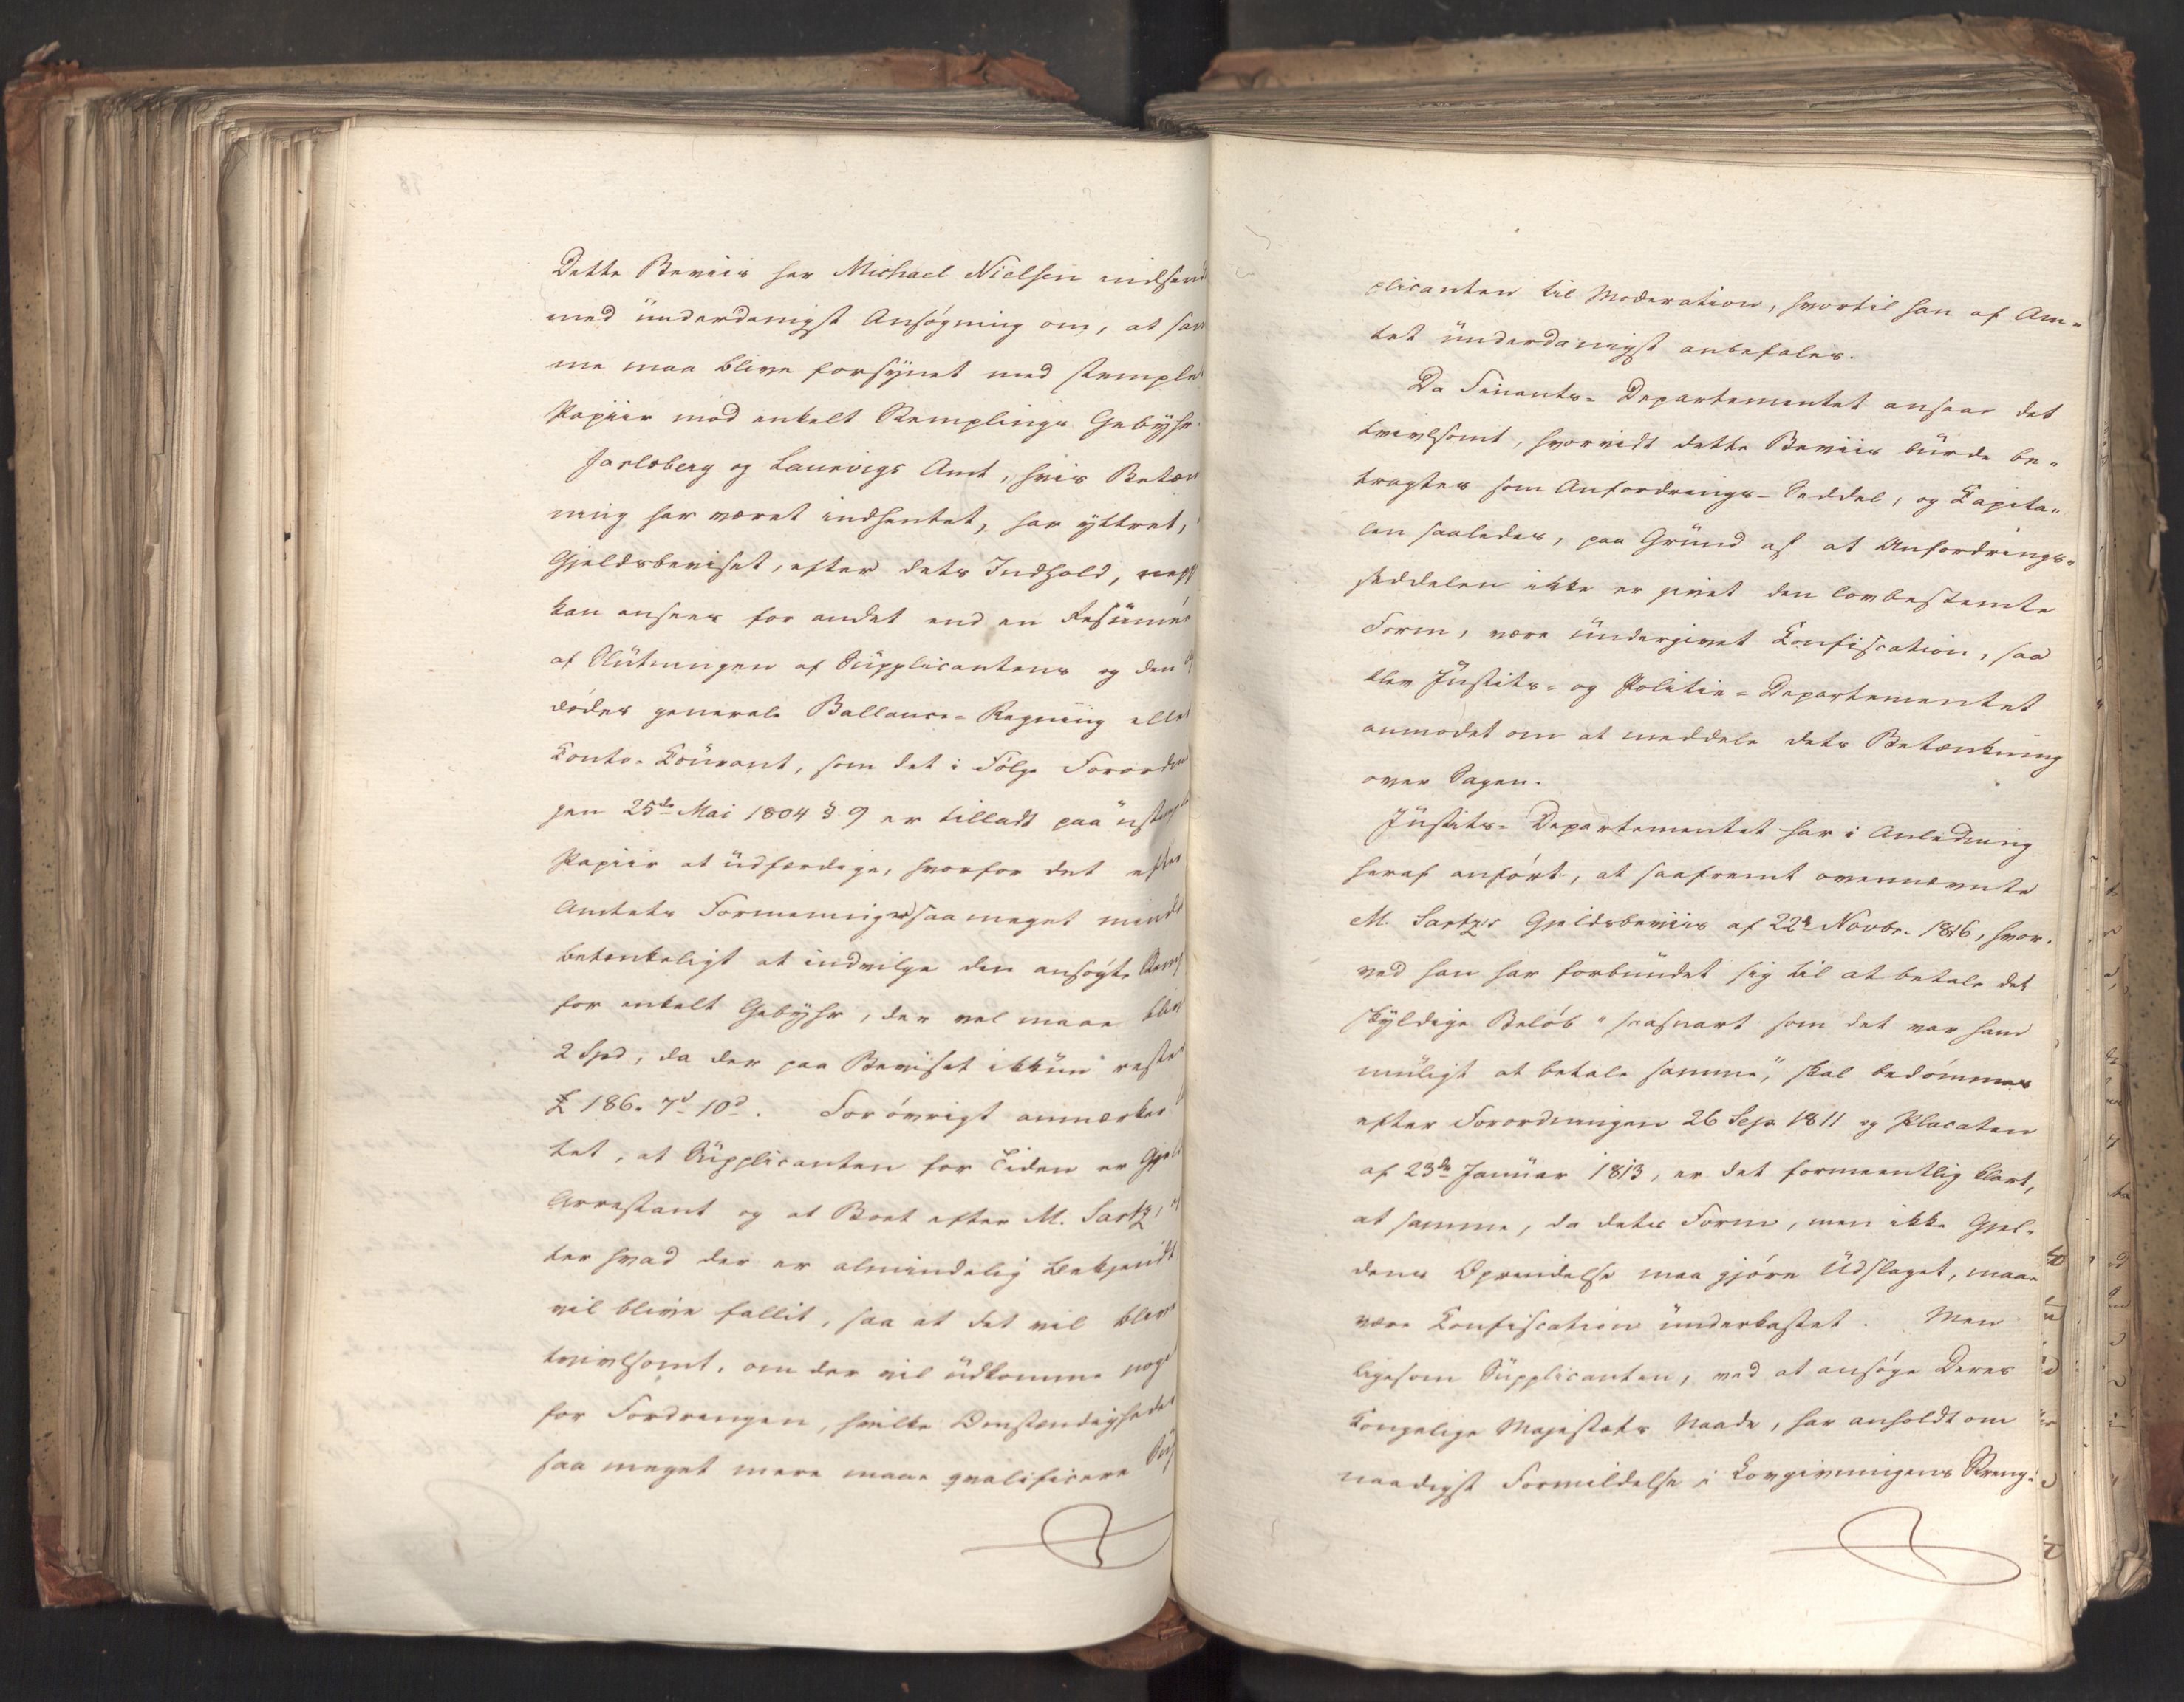 Dette Beviis har Michael Nielsen indsend
med underdanigst Ansøgning om, at sam
me maa blive forsynet med stemplet
Papiir mod enkelt Stemplings Gebyhr.
Jarlsberg og Laurvigs Amt, hvis Betæn
ning har været indhentet, har yttret,
Gjeldsbeviset, efter dets Indhold, nepp
kan ansees for andet end en Resumée
af Slutningen af Supplicantens og den
dødes generale Ballance-Regning eller
Conto-Courant, som det i Følge Forordnin
gen 25de Mai 1804 § 9 er tilladt paa ustemp
Papiir at udfærdige, hvorfor det efter
Amtets Formening saa meget mindre
betænkeligt at indvilge den ansøgte Stemp
for enkelt Gebyhr, der vel maae blive
2 Spd, da der paa Beviset ikkun rester
£ 186. 7s 10d. Forøvrigt anmærker
tet, at Supplicanten for Tiden er Gjelds
Arrestant og at Boet efter M. Sartz, ef
ter hvad der er almindelig bekjendt
vil blive fallit, saa at det vil blive
tvivlsomt, om der vil udkomme noget
for Fordringen, hvilke Omstændigheder
saa meget mere maae qvalificere Sup
plicanten til Moderation, hvortil han af Am-
tet underdanigst anbefales.
Da Finants-Departementet ansaae det
tvivlsomt, hvorvidt dette Beviis burde be-
tragtes som Anfordrings-Seddel, og Capita-
len saaledes, paa Grund af at Anfordrings-
seddelen ikke er givet den lovbestemte
Form, være undergivet Confiscation, saa
blev Justits- og Politie-Departementet
anmodet om at meddele dets Betænkning
over Sagen.
Justits-Departementet har i Anledning
heraf anført, at saafremt ovennævnte
M. Sartz's Gjeldsbeviis af 22de Novbr. 1816, hvor-
ved han har forbundet sig til at betale det
skyldige Beløb "saasnart som det var ham
muligt at betale samme," skal bedømmes
efter Forordningen 26 Sep 1811 og Placaten
af 23de Januar 1813, er det formeentlig klart,
at samme, da dets Form, men ikke Gjel-
dens Oprindelse maa gjøre Udslaget, maae
være Confiscation underkastet. Men
ligesom Supplicanten, ved at ansøge Deres
Kongelige Majestæts Naade, har anholdt om
naadigst Formildelse i Lovgivningens Streng-